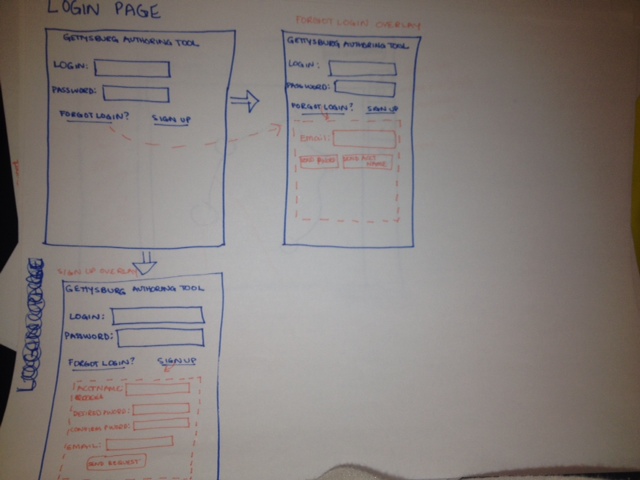 LOGIN PAGE
GETTYSBURG AUTHORING TOOL
LOGIN:
PASSWORD:
FORGOT LOGIN? SIGN UP
FORGOT LOGIN OVERLAY
GETTYSBURG AUTHORING TOOL
LOGIN:
PASSWORD:
FORGOT LOGIN? SIGN UP
EMAIL:
NAME
SIGN UP OVERLAY
GETTYSBURG AUTHORING TOOL
LOGIN:
PASSWORD:
FORGOT LOGIN? SIGN UP
DESIRED PWORD:
CONFIRM PWORD:
EMAIL:
SEND REQUEST